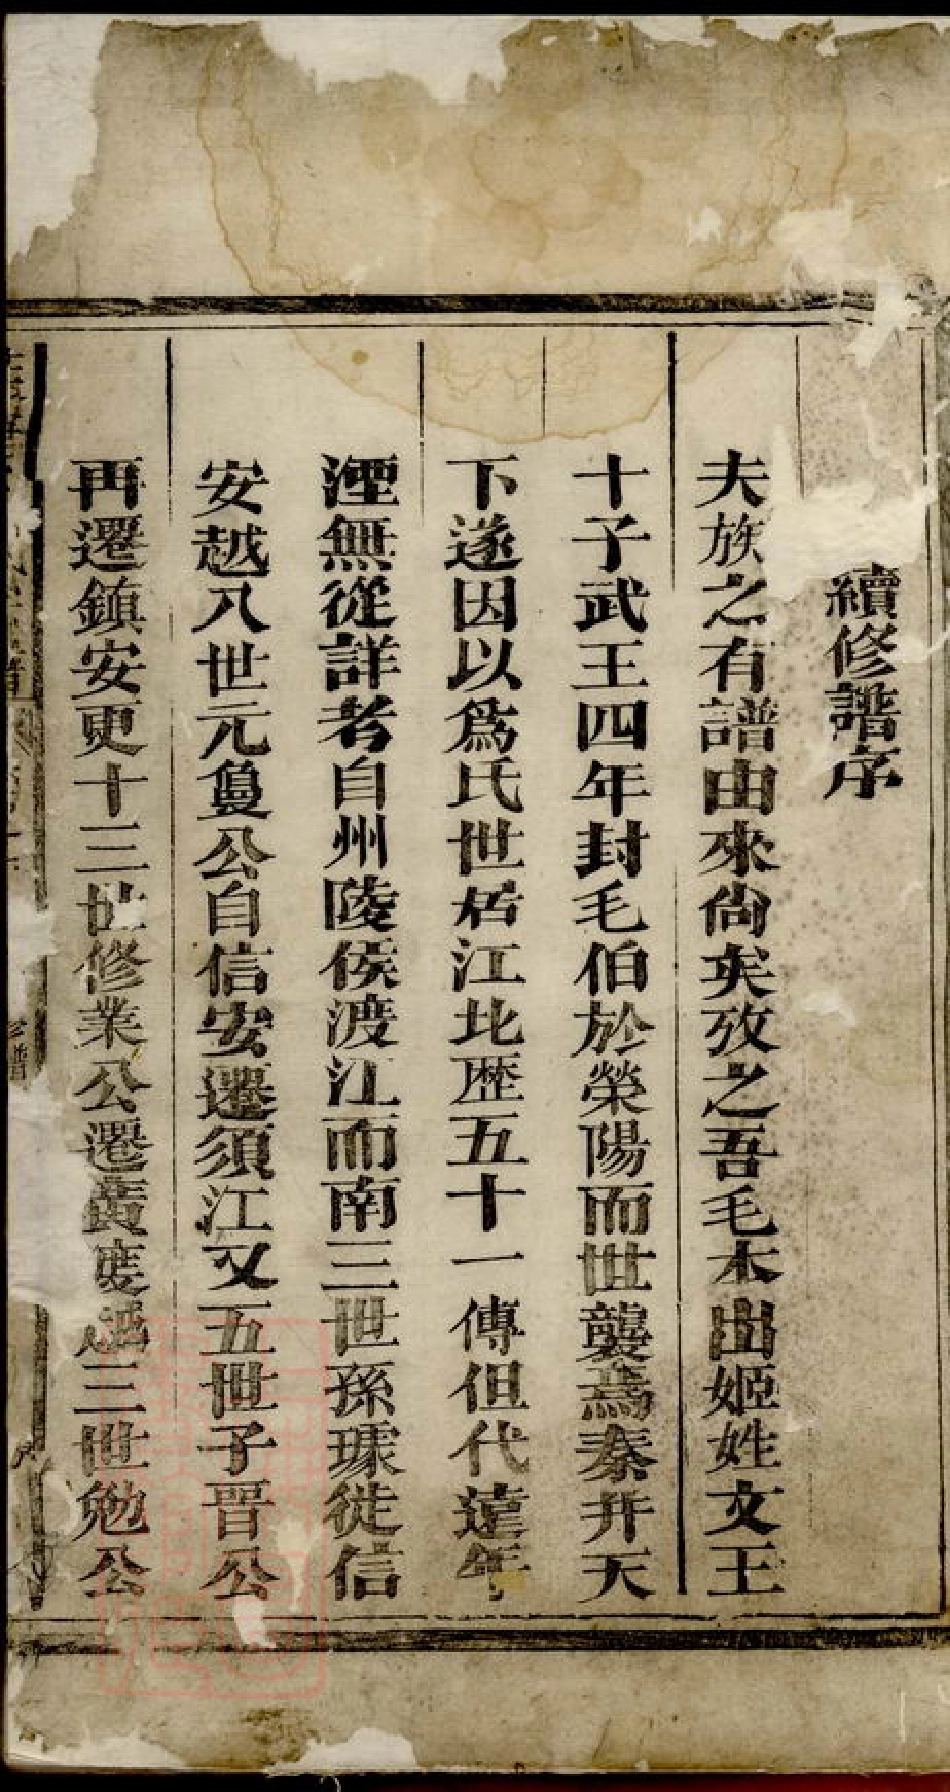 續修譜序
夫族之有譜由來尚矣攷之吾毛本出姬姓文王
十子武王四年封毛伯於榮陽而世襲焉秦并天
下遂因以爲氏世居江北歷五十一傳但代遠年
湮無從詳考自州陵侯渡江而南三世孫璩徙信
安越八世元公自信安遷須江又五世子晉公
再遷鎮安更十三世修業公遷廣度越三世勉公